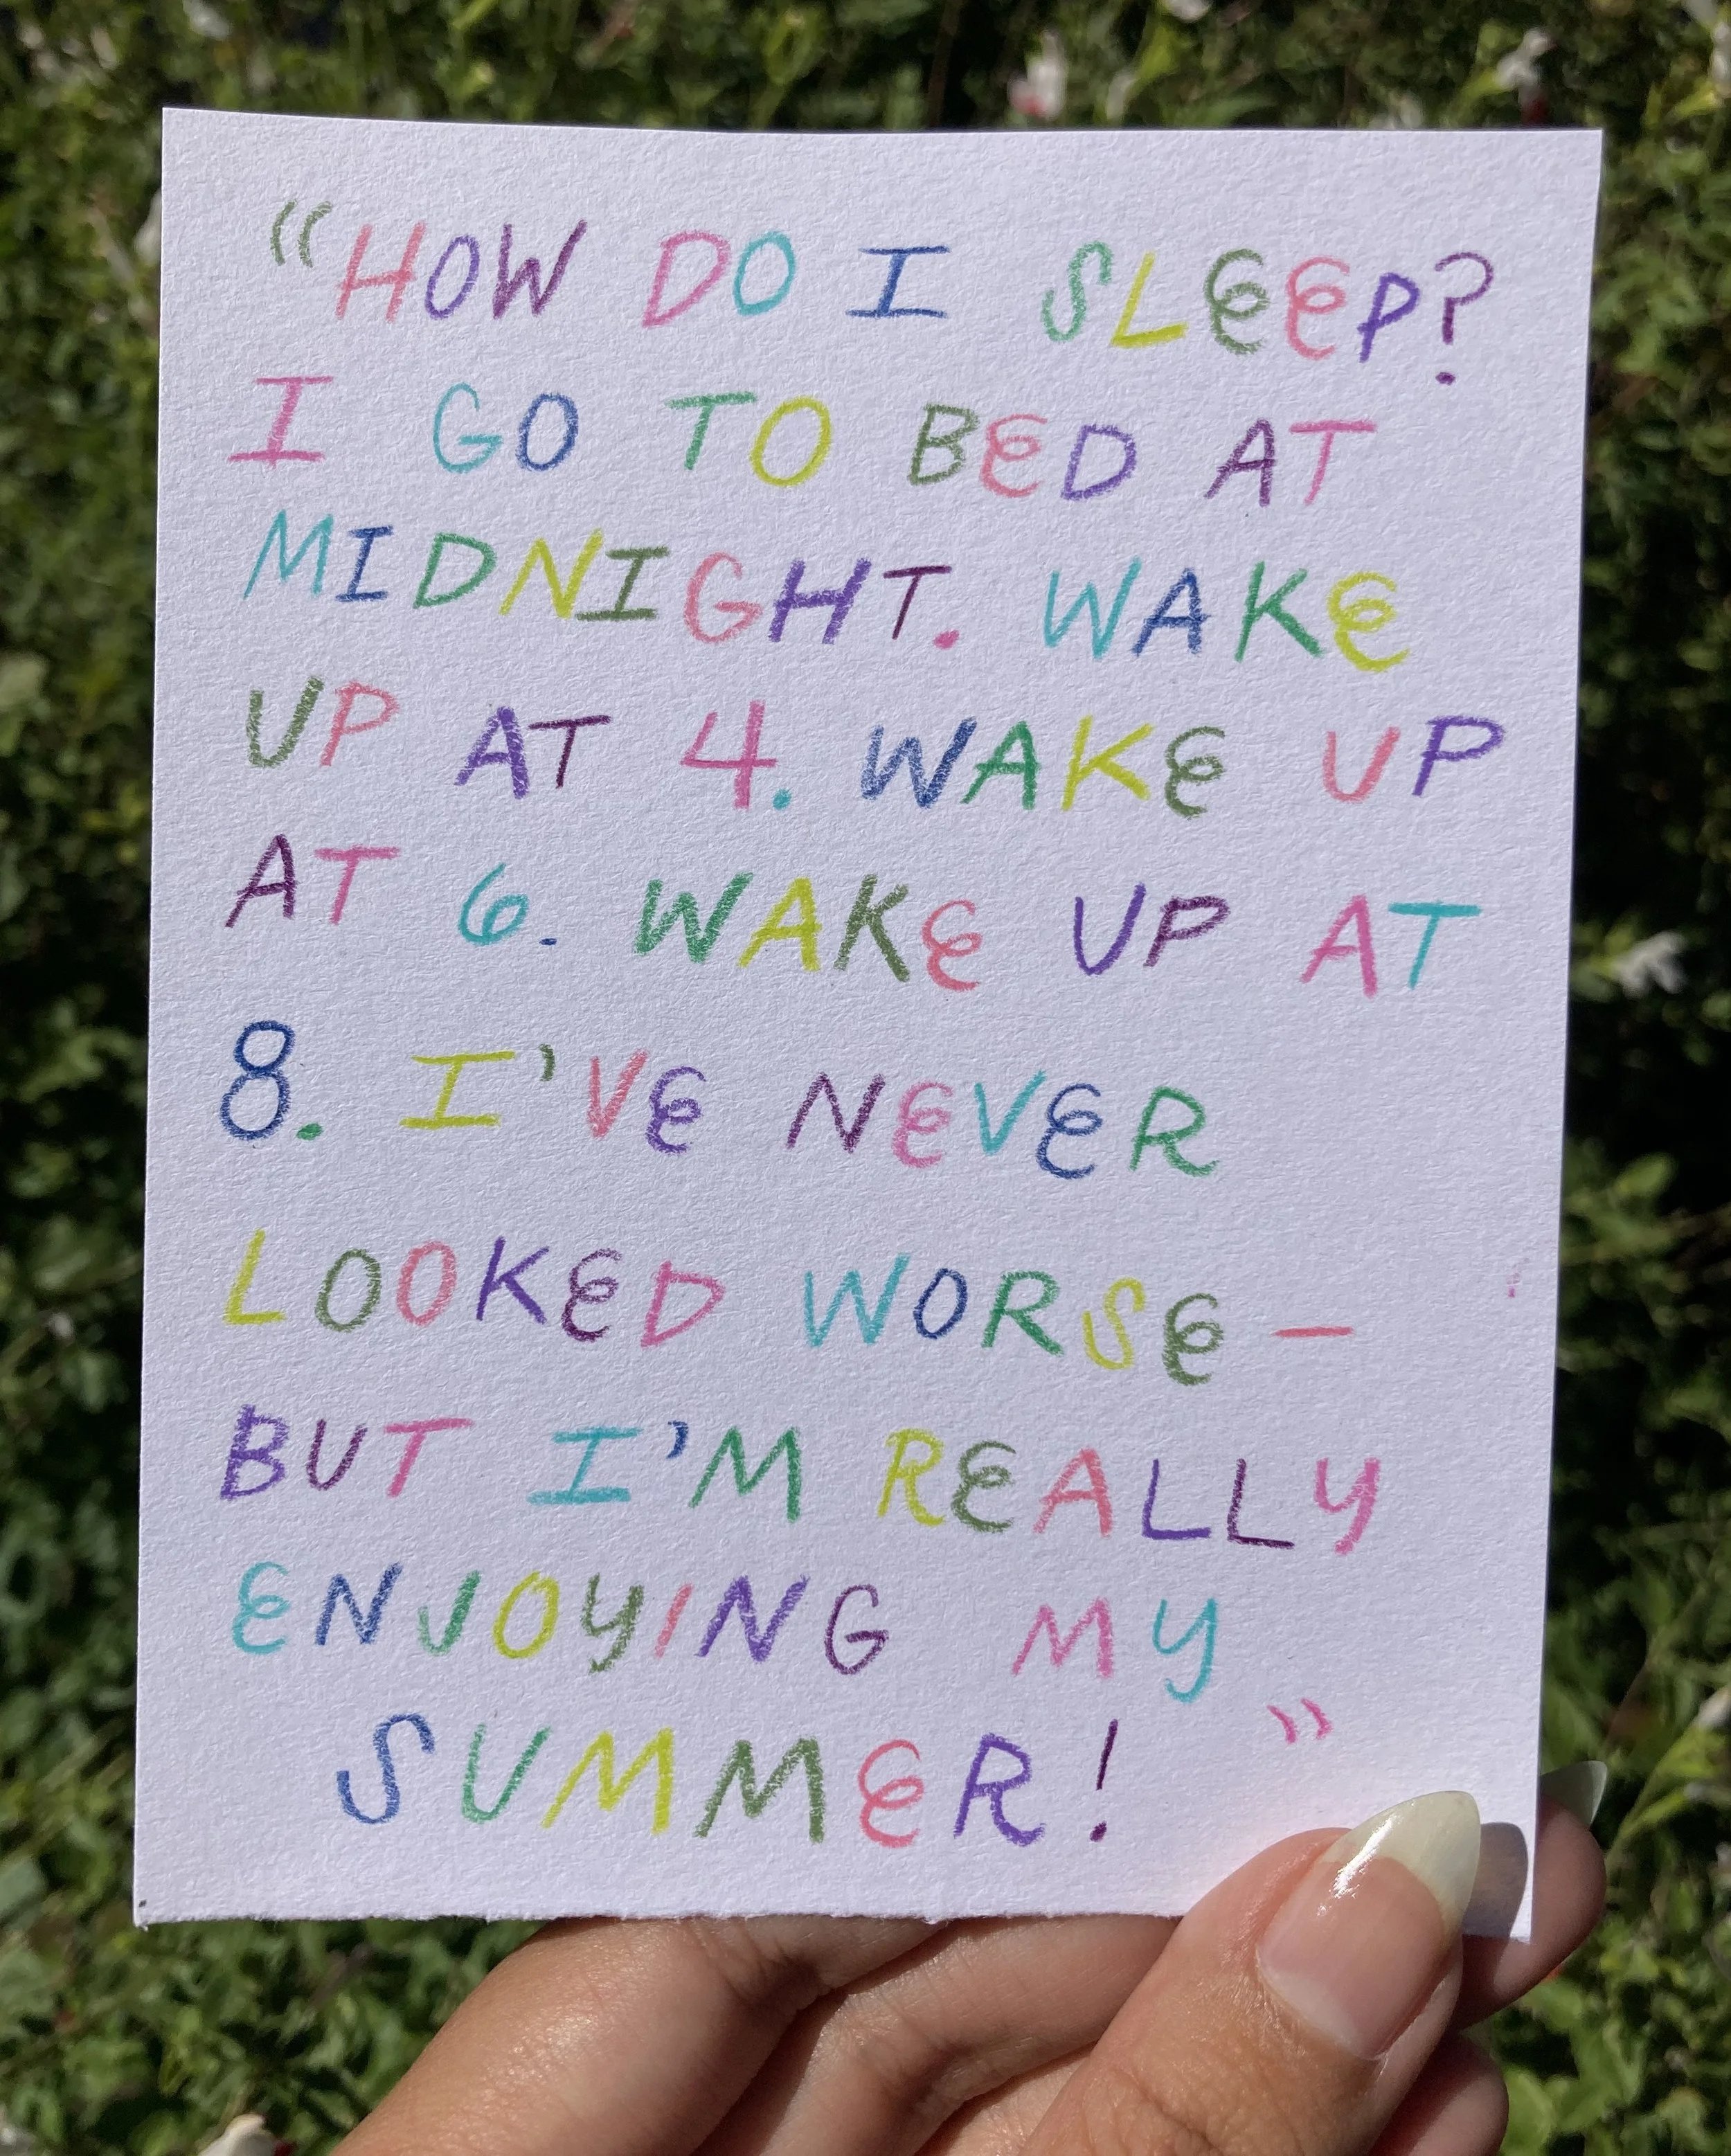 “HOW DO I SLEEP?
I GO TO BED AT
MIDNIGHT. WAKE
UP AT 4. WAKE UP
AT 6. WAKE UP AT
8. I'VE NEVER
LOOKED WORSE—
BUT I'M REALLY
ENJOYING MY
SUMMER!”